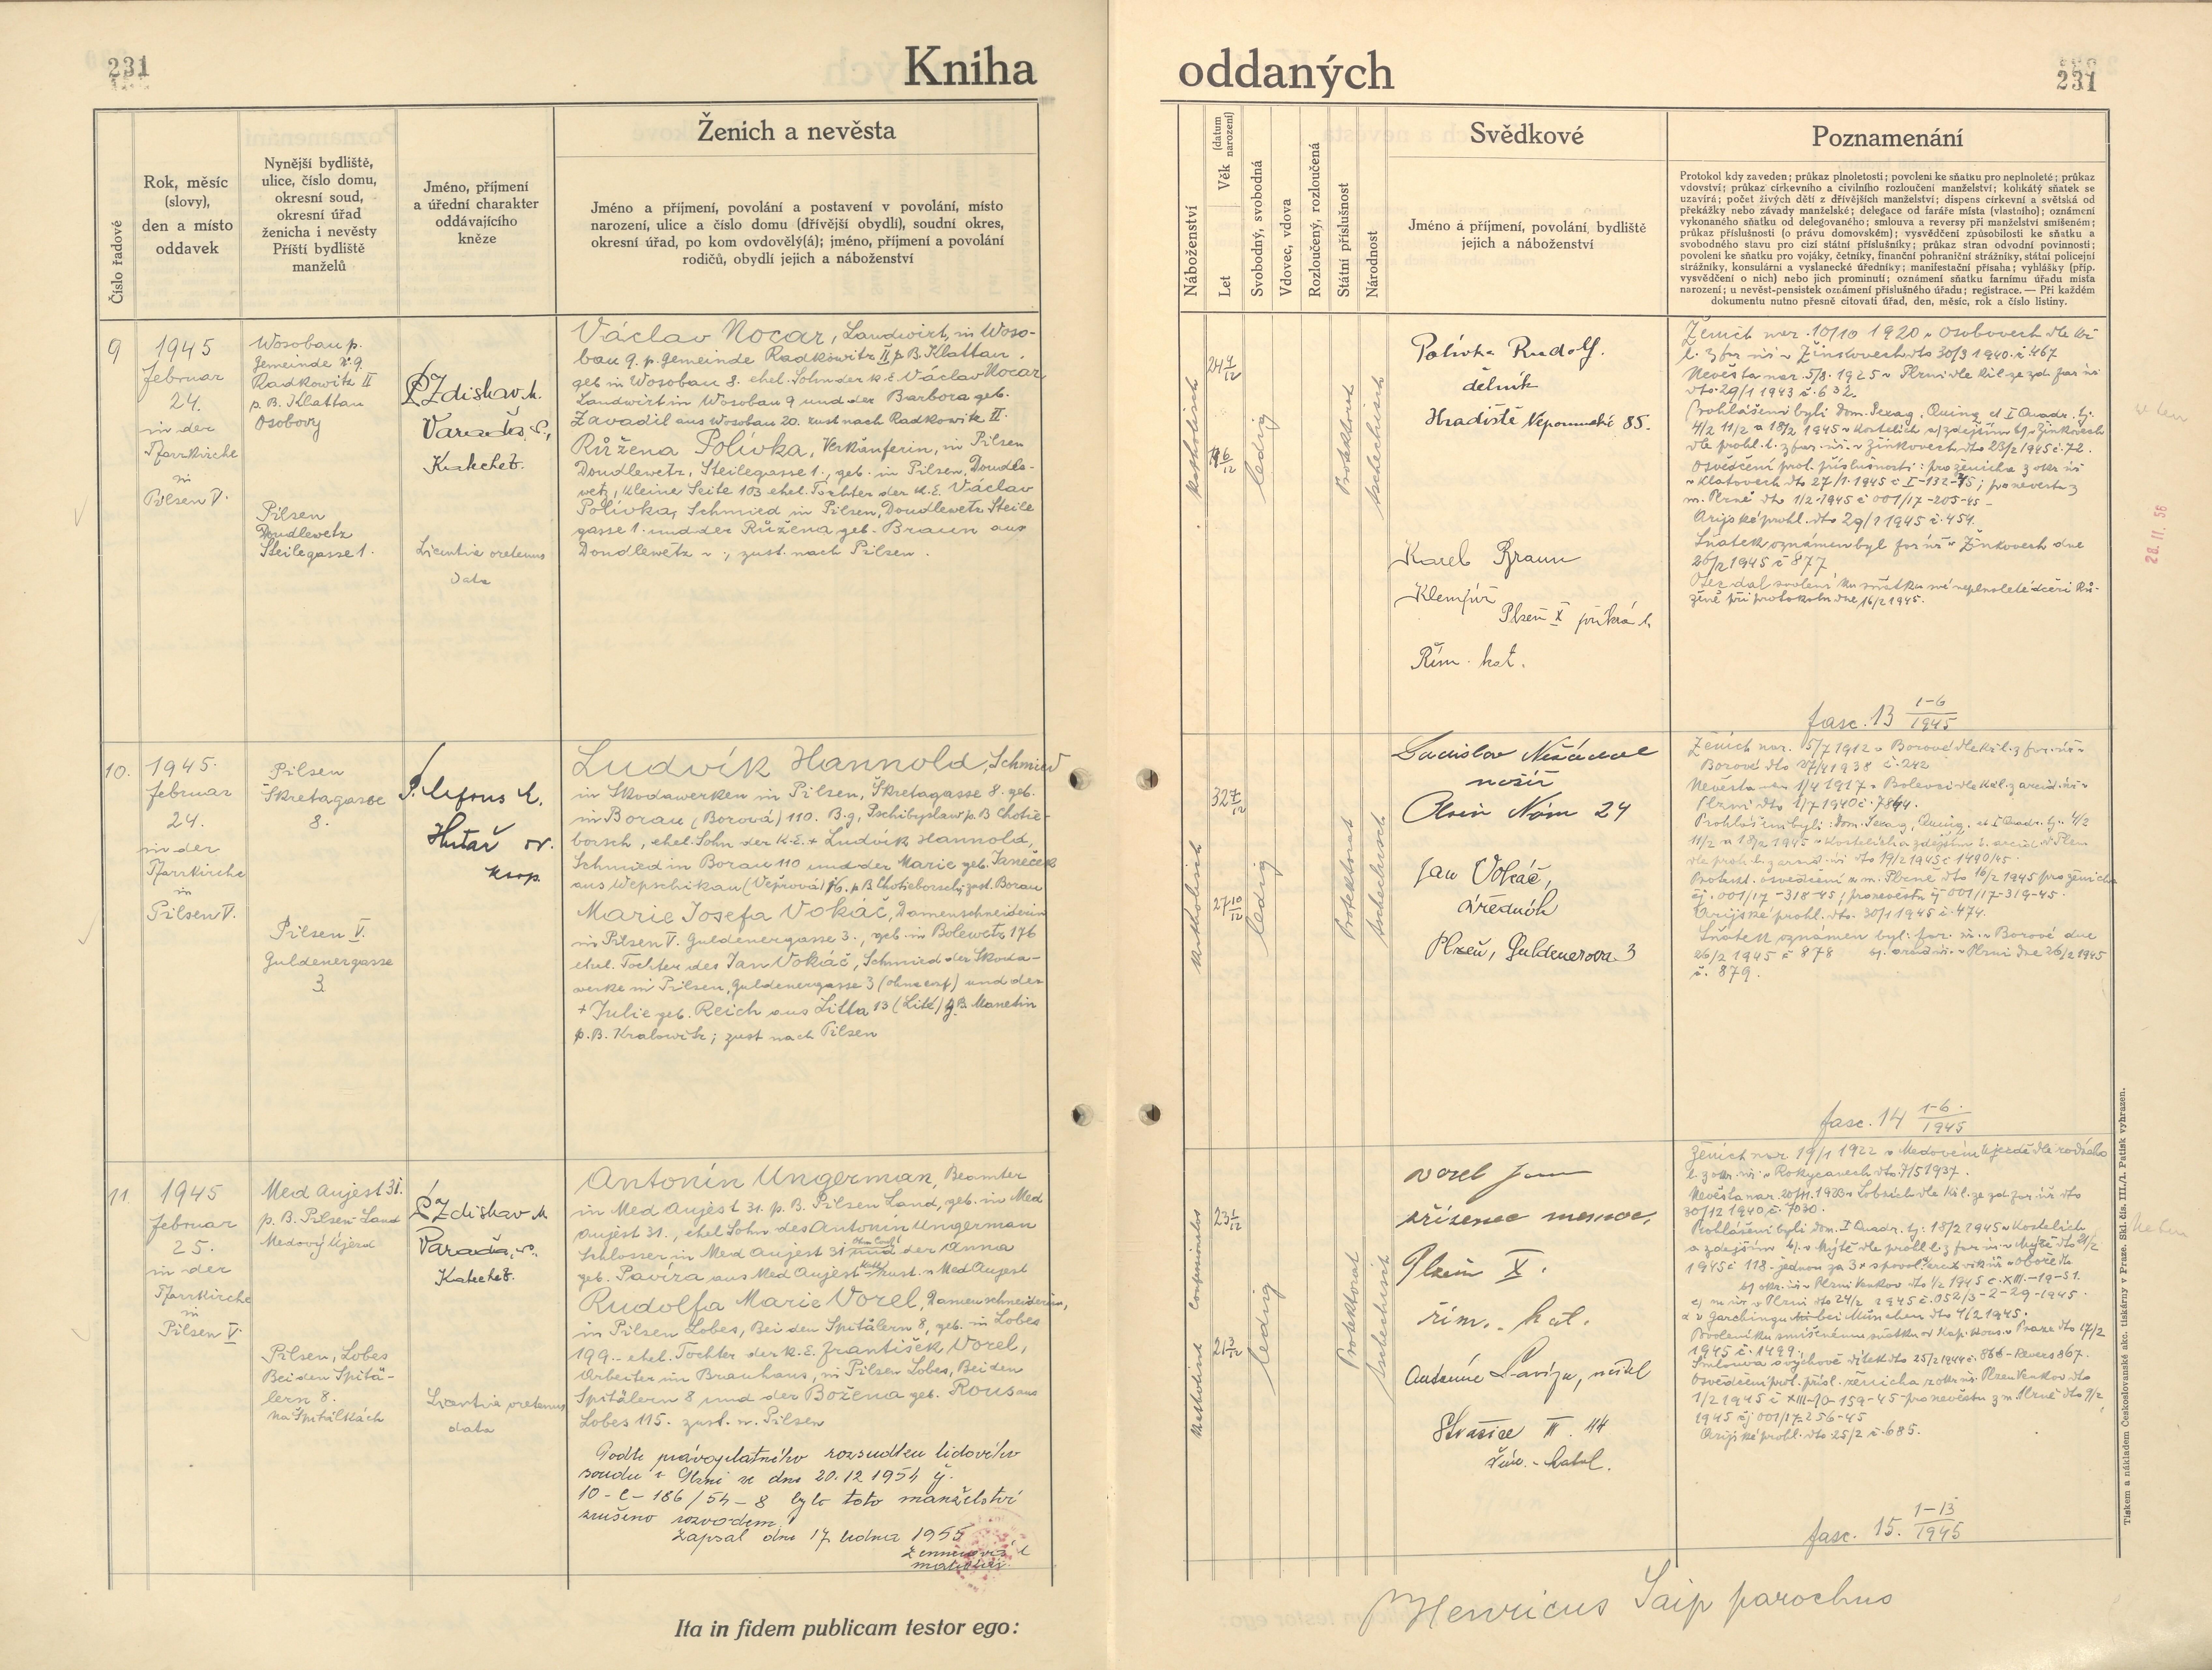 231
Kniha
Číslo řadové
Rok, měsíc
(slovy),
den a místo
oddavek
Nynější bydliště,
ulice, číslo domu,
okresní soud,
okresní úřad
ženicha i nevěsty
Příští bydliště
manželů
Jméno, příjmení
a úřední charakter
oddávajícího
kněze
Ženich a nevěsta
Jméno a příjmení, povolání a postavení v povolání, místo
narození, ulice a číslo domu (dřívější obydlí), soudní okres,
okresní úřad, po kom ovdovělý(á); jméno, příjmení a povolání
rodičů, obydlí jejich a náboženství
9
1945
februar
24.
in der
Pfarrkirche
in
Pilsen V.
Wosobau p.
Gemeinde N. 9
Radkowitz II
p. B. Klattau
Osobovy
Pilsen
Doudlewetz
Steilegasse 1.
P. Zdislav M.
Katechet.
Licentia oretenus
data
Václav Nocar, Landwirt, in Woso-
bau 9. p. Gemeinde Radkowitz II p. B. Klattau.
geb in Wosobau 8. ehel. Sohn der k. E. Václav Nocar
Landwirt in Wosobau 9 und der Barbora geb.
Zavadil aus Wosobau 20. zust nach Radkowitz II.
Růžena Polívka, Verkäuferin, in Pilsen
Doudlewetz, Steilegasse 1., geb. in Pilsen, Doudle-
wetz, Kleine Seite 103 ehel. Tochter der K. E. Václav
Polívka, Schmied in Pilsen, Doudlewetz Steile
gasse 1. und der Růžena geb. Braun aus
Doudlewetz; zust. nach Pilsen.
10.
1945.
februar
24.
in der
Pfarrkirche
in
Pilsen V.
Pilsen
Škretagasse
8.
Pilsen V.
Guldenergasse
3.
Hutař
Ludvík Hannold, Schmied
in Skodawerken in Pilsen, Škretagasse 8. geb.
in Borau (Borová) 110. B. g. Pschibyslaw p. B Chotie-
borsch, ehel. Sohn der K. E. + Ludvík Hannold,
Schmied in Borau 110 und der Marie geb. Janeček
aus Wepschikau (Vepřová) 16. p B Chotieborsch; zust. Borau
Marie Josefa Vokáč, Damenschneiderin
in Pilsen V. Guldenergasse 3., geb. in Bolewetz 176
ehel. Tochter des Jan Vokáč, Schmied der Skoda-
werke in Pilsen, Guldenergasse 3 (ohne conf) und der
+ Julie geb. Reich aus Litta 13 (Lité) g. B. Manetin
p. B. Kralowitz; zust nach Pilsen
11
1945
februar
25.
in der
Pfarrkirche
in
Pilsen V.
Med Aujest 31.
p. B. Pilsen-Land
Medový Újezd
Pilsen, Lobes
Bei den Spitä-
lern 8.
Na Špitálkách
P. Zdislav M
Katechet.
Licentia oretenus
data
Antonín Ungerman, Beamter
in Med Aujest 31. p. B. Pilsen Land, geb. in Med
Aujest 31., ehel Sohn des Antonín Ungerman
Schlosser in Med Aujest 31 und der Anna
geb. Pavíza aus Med Aujest zust. n Med Aujest
Rudolfa Marie Vorel, Damenschneiderin,
in Pilsen Lobes, Bei den Spitälern 8, geb. in Lobes
199.- ehel. Tochter der k. E. František Vorel,
Arbeiter im Brauhaus, in Pilsen Lobes, Bei den
Spitälern 8 und der Božena geb. Rous aus
Lobes 115. zust. n. Pilsen
Podle pravoplatného rozsudku lidového
soudu v Plzni ze dne 20.12 1954 č.
10-C-186/54-8 bylo toto manželství
zrušeno rozvodem.
Zapsal dne 17 ledna 1955
Ita in fidem publicam testor ego:
oddaných
231
Náboženství
Věk (datum narození)
Let
Svobodný, svobodná
Vdovec, vdova
Rozloučený, rozloučená
Státní příslušnost
Národnost
Svědkové
Jméno a příjmení, povolání, bydliště
jejich a náboženství
Poznamenání
Protokol kdy zaveden; průkaz plnoletosti; povolení ke sňatku pro neplnoleté; průkaz
vdovství; průkaz církevního a civilního rozloučení manželství; kolikátý sňatek se
uzavírá; počet živých dětí z dřívějších manželství; dispens církevní a světská od
překážky nebo závady manželské; delegace od faráře místa (vlastního); oznámení
vykonaného sňatku od delegovaného; smlouva a reversy při manželství smíšeném;
průkaz příslušnosti (o právu domovském); vysvědčení způsobilosti ke sňatku a
svobodného stavu pro cizí státní příslušníky; průkaz stran odvodní povinnosti;
povolení ke sňatku pro vojáky, četníky, finanční pohraniční strážníky, státní policejní
strážníky, konsulární a vyslanecké úředníky; manifestační přísaha; vyhlášky (příp.
vysvědčení o nich) nebo jich prominutí; oznámení sňatku farnímu úřadu místa
narození; u nevěst-pensistek oznámení příslušného úřadu; registrace. — Při každém
dokumentu nutno přesně citovati úřad, den, měsíc, rok a číslo listiny.
katholisch
24 4/12
19 6/12
ledig
Protektorat
tschechisch
Polívka Rudolf.
dělník
Hradiště Nepomucké 85.
Karel Braun
Klempíř
Plzeň X příkrá 1.
Řím. kat.
Ženich nar. 10/10 1920 v Osobovech dle kř
l. z far. úř. v Žinkovech dto 30/3 1940. č 467
Nevěsta nar. 5/8. 1925 v Plzni dle kř. l. ze zd. far. úř
dto. 29/1 1943 č. 632.
Prohlášeni byli dom. Sexag, Quinq. et I Quadr. tj.
4/2 11/2 a 18/2 1945 v kostelích a) zdejším b) v Žinkovech
dle prohl. l. z far. úř. v Žinkovech dto 23/2 1945 č. 72.
Osvědčení prot. příslušnosti: pro ženicha z okr. úř
v Klatovech dto 27/1. 1945 č I-132-45; pro nevěstu z
m. Plzně dto 1/2 1945 č 001/17-205-45-
Arijské prohl. dto 29/1 1945 č. 454.
Sňatek oznámen byl far. úř. v Žinkovech dne
26/2 1945 č 877
Otec dal svolení ku sňatku své neplnoleté dceři Rů-
ženě při protokolu dne 16/2 1945.
28. II. 56
fasc. 13 1-6/1945
katholisch
32 7/12
27 10/12
ledig
Protektorat
tschechisch
Ladislav
nožíř
24
Jan Vokáč,
úředník
Plzeň, Guldenerova 3
Ženich nar. 5/7 1912 v Borové dle kř. l. z far. úř. v
Borové dto 27/4 1938 č. 242
Nevěsta nar. 1/4 1917 v Bolevci dle kř. l. z arcid. úř. v
Plzni dto 1/7 1940 č. 7844.
Prohlášeni byli: dom. Sexag, Quinq. et I Quadr. tj. 4/2
11/2 a 18/2 1945 v kostelích a zdejším b. arcid. v Plzni
dle prohl. l. z arcid. úř. dto 19/2 1945 č 1490/45.
Protekt. osvědčení z m. Plzně dto 16/2 1945 pro ženicha
čj. 001/17-318-45; pro nevěstu čj 001/17-319-45.
Arijské prohl. dto. 30/1 1945 č. 474.
Sňatek oznámen byl: far. ú. v Borové dne
26/2 1945 č 878 b). arcid. úř. v Plzni dne 26/2 1945
č. 879.
fasc. 14 1-6./1945
katholisch
23 1/12
21 3/12
ledig
Protektorat
tschechisch
Vorel
zřízenec nemoc.
Plzeň X.
řím. kat.
Antonín Pavíza,
Strašice II. 44
Řím.-katol.
Ženich nar 19/1 1922 v Medovém Újezdě dle rodného
l. z okr. úř. v Rokycanech dto. 7/5 1937.
Nevěsta nar. 20/11. 1923 v Lobzích dle kř. l. ze zd far. úř dto
30/12 1940 č. 7030.
Prohlášeni byli dom. I Quadr. tj. 18/2 1945 v kostelích
a zdejším b). v Mýtě dle prohl l. z far úř v Mýtě dto 21/2
Smlouva o výchově dítek dto 25/2 1944 č. 866 - Revers 867.
Osvědčení prot. přísl. ženicha z okr. úř. Plzeň Venkov dto
1/2 1945 č XIII-10-159-45 pro nevěstu z m. Plzně dto 9/2
1945 čj 001/17-256-45
Arijské prohl. dto. 25/2 č. 685.
fasc. 15. 1-13/1945
Henricus Saip parochus
Tiskem a nákladem Českoslovanské akc. tiskárny v Praze. Skl. čís. III./1. Patisk vyhrazen.